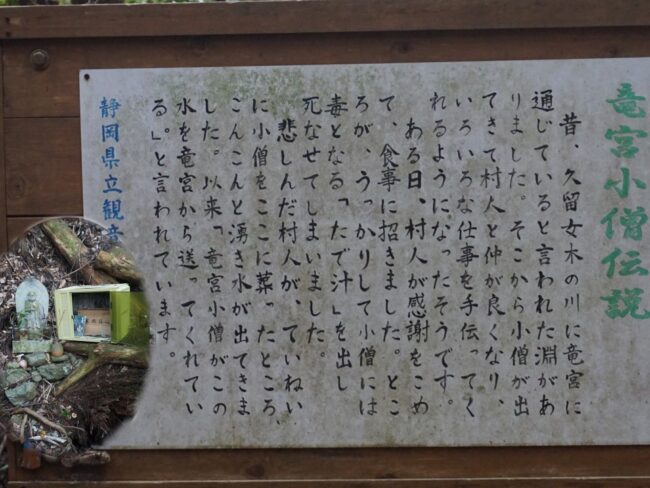 竜宮小僧伝説
昔、久留女木の川に竜宮に
通じていると言われた淵があ
りました。そこから小僧が出
てきて村人と仲が良くなり、
いろいろな仕事を手伝ってく
れるようになったそうです。
ある日、村人が感謝をこめ
て、食事に招きました。とこ
ろが、うっかりして小僧には
毒となる「たで汁」を出し
死なせてしまいました。
悲しんだ村人が、ていねい
に小僧をここに葬ったところ、
こんこんと湧き水が出てきま
した。以来「竜宮小僧がこの
水を竜宮から送ってくれてい
る。」と言われています。
静岡県立観音